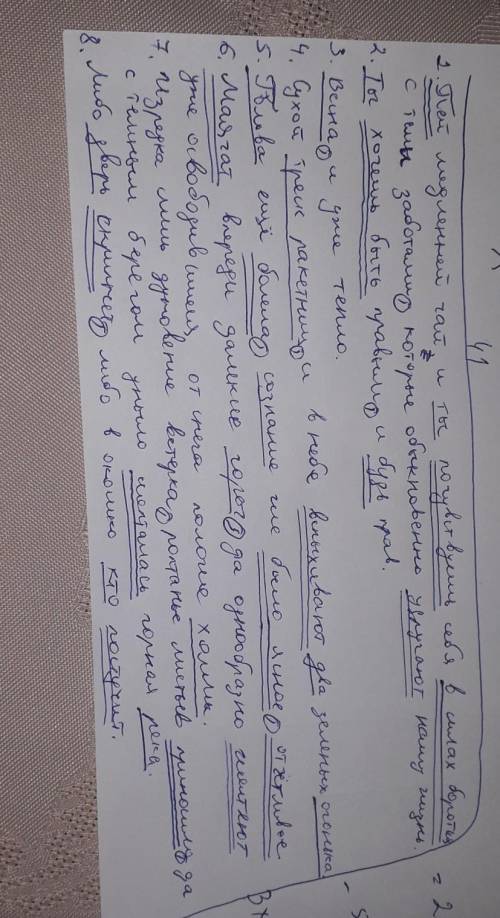 41
1. Пей медленней чай и ты почувствуешь себя в силах боротся = 2
с теми заботами, которые обыкновенно удручают нашу жизнь.
2. Ты хочешь быть правым, и будь прав.
3. Весна, и уже тепло.
4. Сухой треск ракетниц, и в небе вспыхивают два зеленых огонька. - 5
5. Голова ещё болела, сознание же было ясное, отчётливое
6. Маячат впереди далкние горы, да однообразно желтеют
уже освободившиеся от снега пологие холмы.
7. Изредка лишь дуновение ветерка роптанье листьев приносило, да
с темным берегом уныло шепталась горная река.
8. Либо дверь скрипнет, либо в окошко кто постучит.